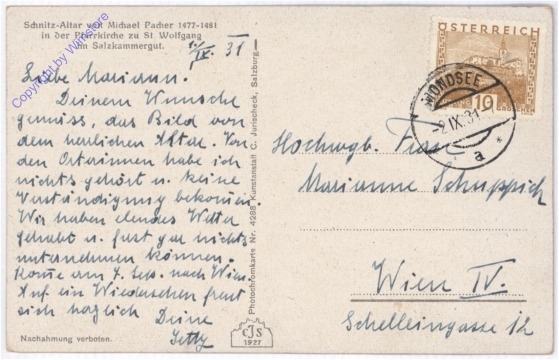 Schnitz-Altar von Michael Pacher 1477-1481
in der Pfarrkirche zu St Wolfgang
im Salzkammergut.
1./IX. 31
Liebe Mariann.
Deinem Wunsche
gemäss, das Bild von
dem herlichen Altar. Von
den Osterinnen habe ich
nichts gehört u. keine
Verständigung bekomen.
Wir haben elendes Wetter
gehabt u. fast gar nichts
unternehmen können.
Kome am 7. Sep. nach Wien.
Auf ein Wiedersehen freut
sich herzlich Deine
Jetty
Nachahmung verboten.
Photochromkarte Nr. 4288 Kunstanstalt C. Jurischeck, Salzburg.
CJS
1927
ÖSTERREICH
10
MONDSEE
-2.IX.31-
* a *
Hochwgb. Frau
Marianne Schuppich
Wien IV.
Schelleingasse 12
Copyright by Winstore